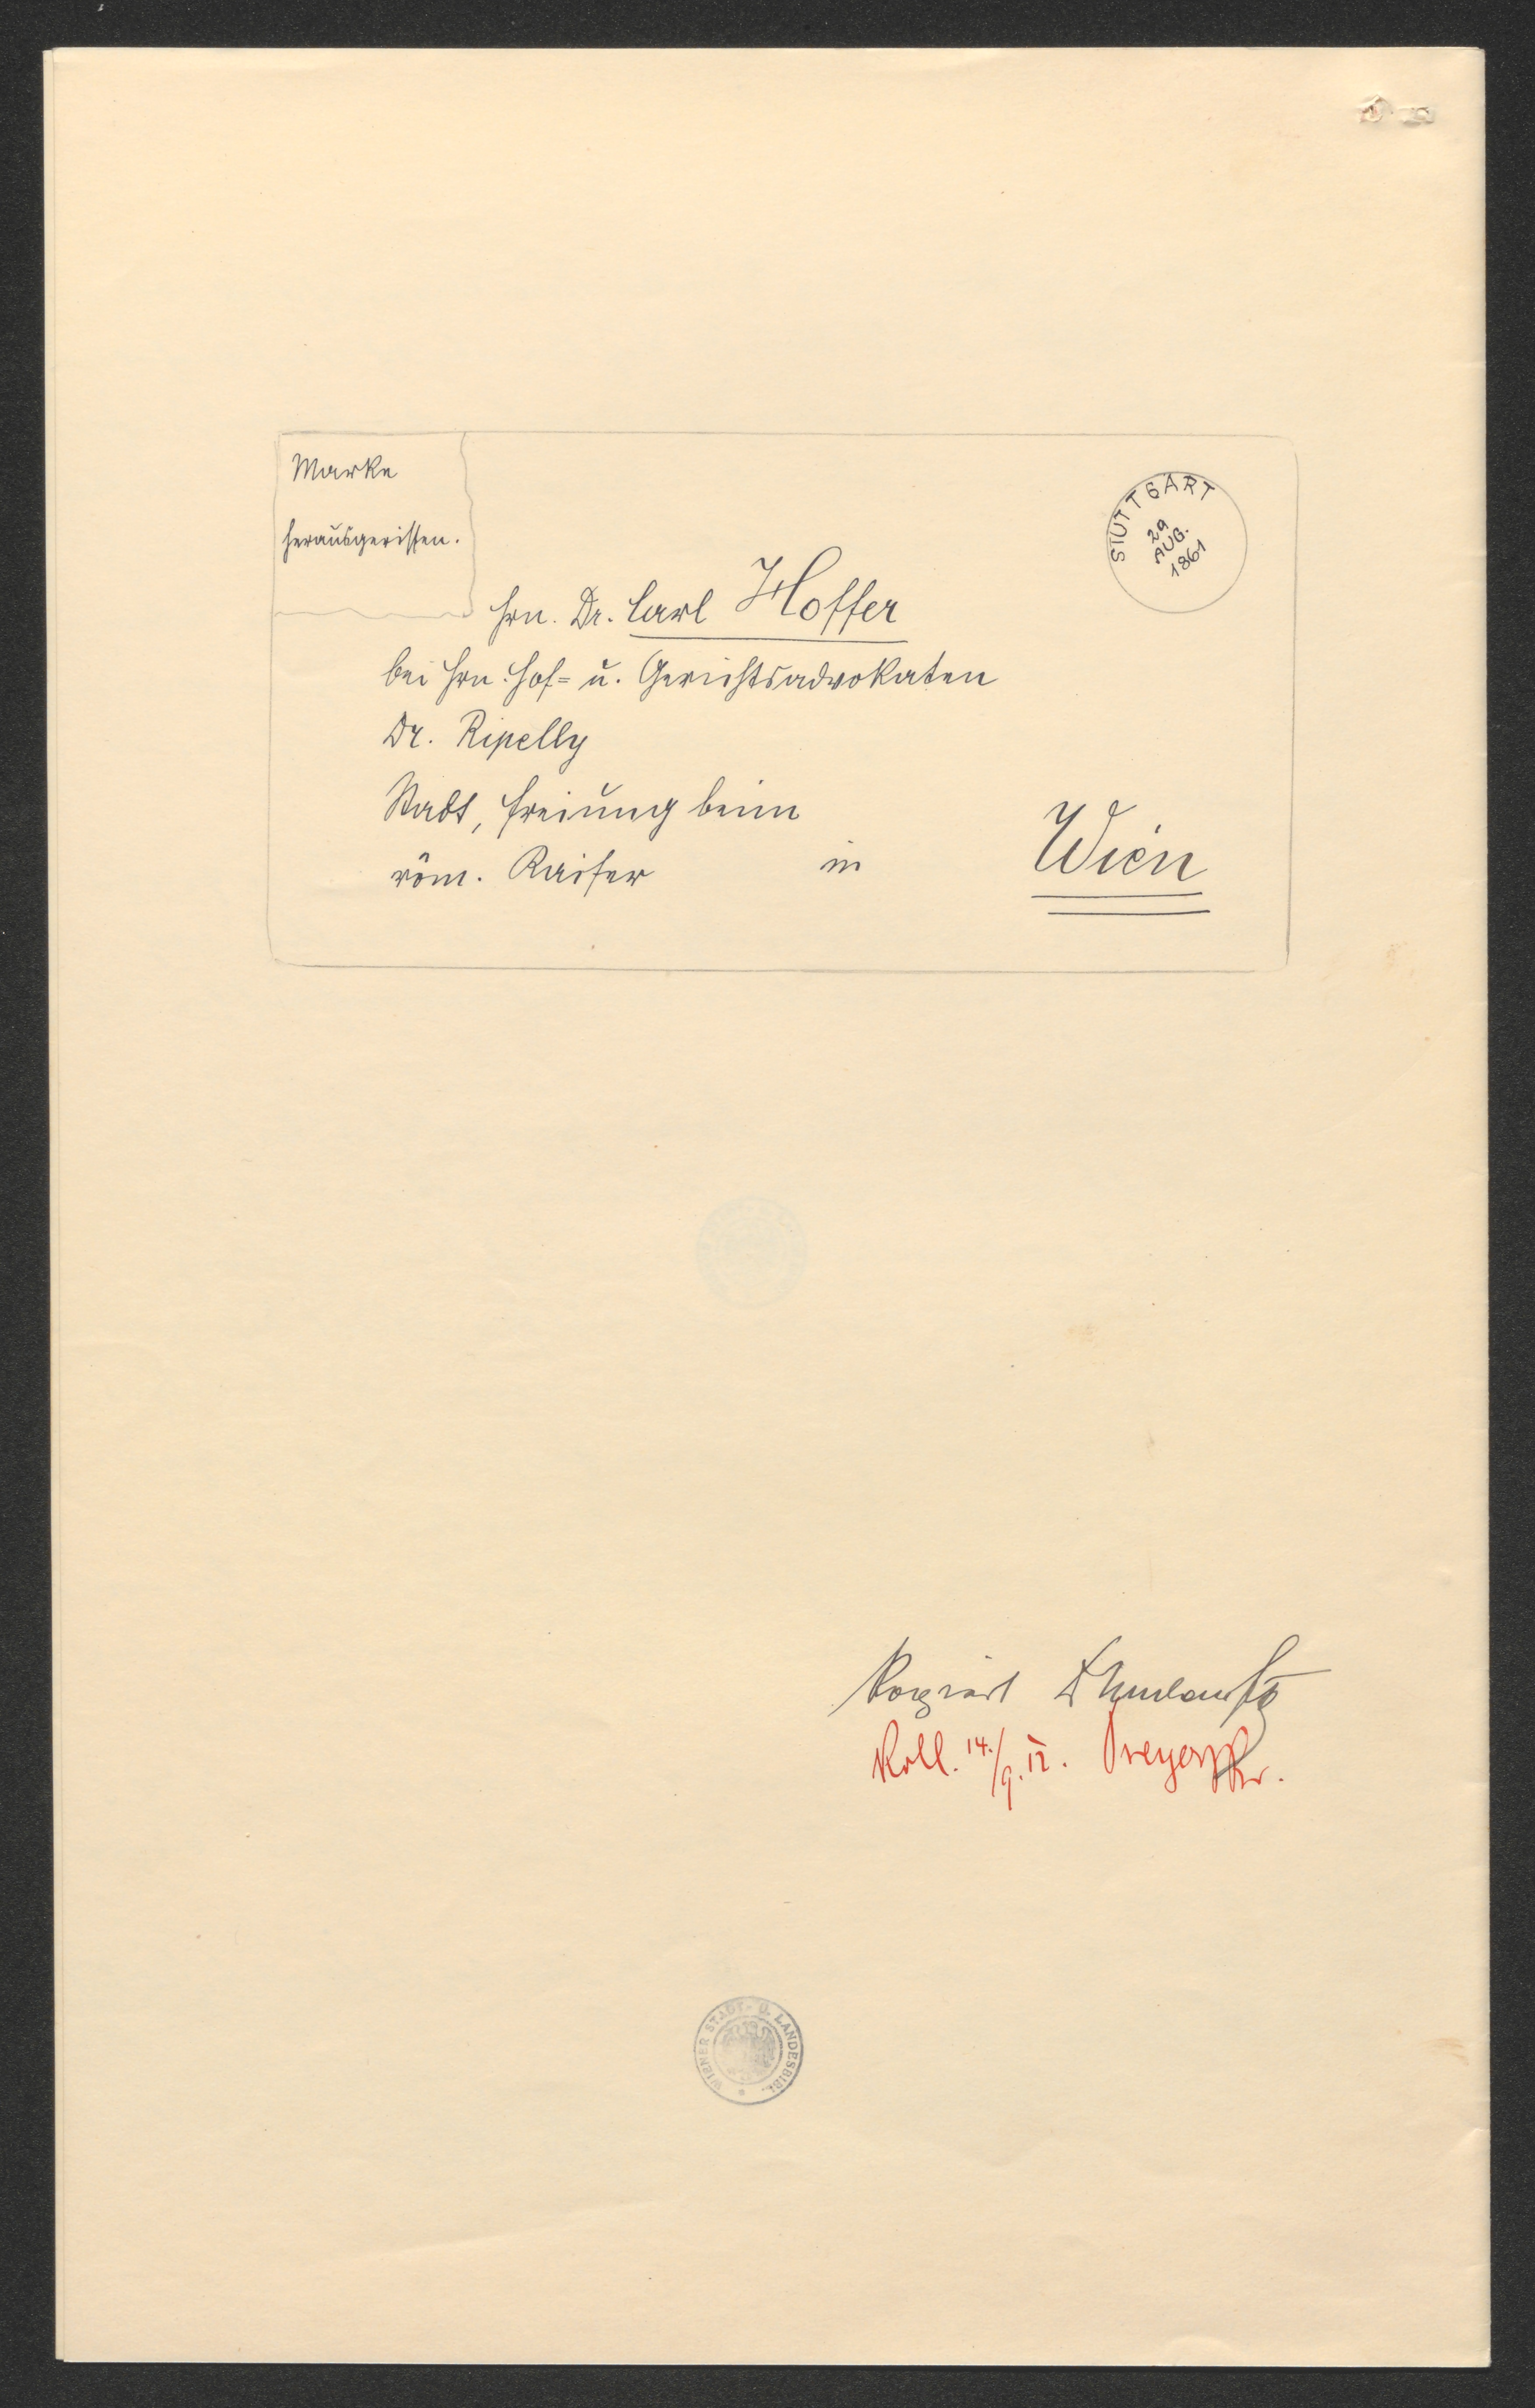 Marke
herausgerissen.
STUTTGART
29
AUG.
1861
Hrn. Dr. Carl Hoffer
bei Hrn. Hof= u. Gerichtsadvokaten
Dr. Ripelly
Stadt, Freiung beim
röm. Kaiser in Wien
Koll. 14./9. 12.
WIENER STADT- U. LANDESBIBL.